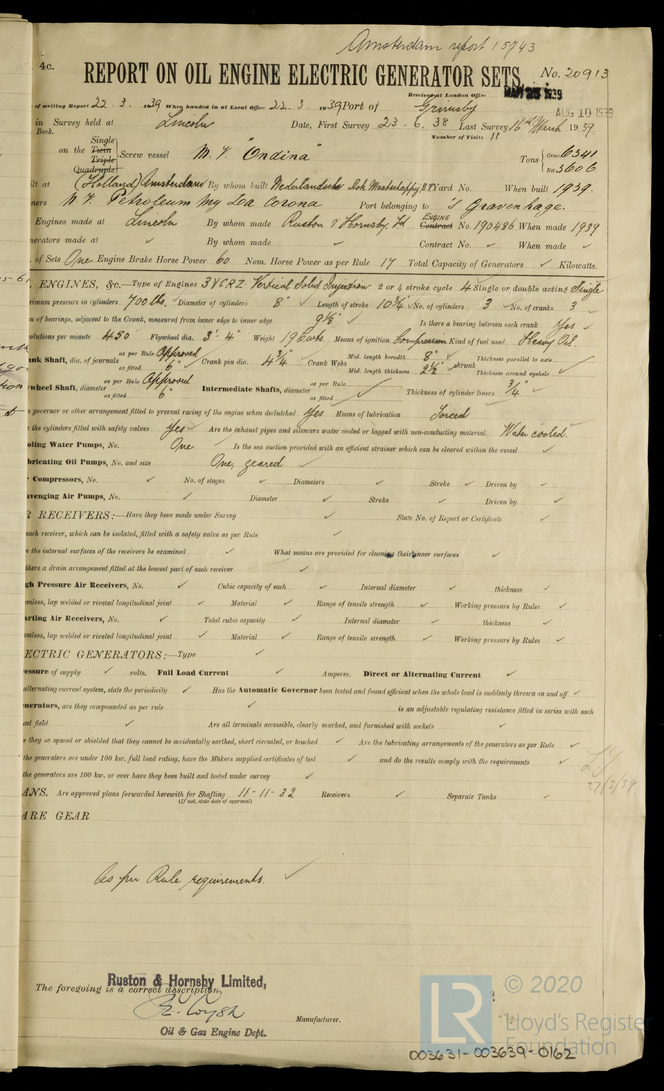 Amsterdam report 15743
4c.
REPORT ON OIL ENGINE ELECTRIC GENERATOR SETS. No. 20913
Received at London Office
MAR 25 1939
AUG 10 1939
of writing Report 22. 3. 1939 When handed in at Local Office 22. 3. 1939 Port of Grimsby
in Survey held at Lincoln Date, First Survey 23 . 6. 38 Last Survey 16th March 1939.
Book. Number of Visits 11
on the Single Twin Triple Quadruple Screw vessel M.V. "Ondina" Tons Gross 6341 Net 3606
ilt at (Holland) Amsterdam By whom built Nederlandsche Dok Maatschappy N.V. Yard No. When built 1939.
ners N.V. Petroleum My La Corona Port belonging to 's Gravenhage.
Engines made at Lincoln By whom made Ruston & Hornsby, Ltd Contract ENGINE No. 190486 When made 1939
nerators made at By whom made Contract No. When made
of Sets One Engine Brake Horse Power 60 Nom. Horse Power as per Rule 17 Total Capacity of Generators Kilowatts.
L ENGINES, &c.—Type of Engines 3VCRZ Vertical Solid Injection 2 or 4 stroke cycle 4 Single or double acting Single
ximum pressure in cylinders 700 lbs. Diameter of cylinders 8" Length of stroke 10¾" No. of cylinders 3 No. of cranks 3
n of bearings, adjacent to the Crank, measured from inner edge to inner edge 9⅛" Is there a bearing between each crank Yes
volutions per minute 450 Flywheel dia. 3'-4" Weight 19 cwts Means of ignition Compression Kind of fuel used Heavy Oil.
ank Shaft, dia. of journals as per Rule Approved as fitted 6" Crank pin dia. 4¾" Crank Webs Mid. length breadth 8" Mid. length thickness 2½" shrunk Thickness parallel to axis Thickness around eyehole
ywheel Shaft, diameter as per Rule Approved as fitted 6" Intermediate Shafts, diameter as per Rule as fitted Thickness of cylinder liners ¾"
a governor or other arrangement fitted to prevent racing of the engine when declutched Yes Means of lubrication Forced
e the cylinders fitted with safety valves Yes Are the exhaust pipes and silencers water cooled or lagged with non-conducting material Water cooled.
oling Water Pumps, No. One Is the sea suction provided with an efficient strainer which can be cleared within the vessel
ubricating Oil Pumps, No. and size One, geared
r Compressors, No. No. of stages Diameters Stroke Driven by
avenging Air Pumps, No. Diameter Stroke Driven by
R RECEIVERS:—Have they been made under Survey State No. of Report or Certificate
each receiver, which can be isolated, fitted with a safety valve as per Rule
n the internal surfaces of the receivers be examined What means are provided for cleaning their inner surfaces
there a drain arrangement fitted at the lowest part of each receiver
gh Pressure Air Receivers, No. Cubic capacity of each Internal diameter thickness
amless, lap welded or riveted longitudinal joint Material Range of tensile strength Working pressure by Rules
arting Air Receivers, No. Total cubic capacity Internal diameter thickness
amless, lap welded or riveted longitudinal joint Material Range of tensile strength Working pressure by Rules
ECTRIC GENERATORS:—Type
essure of supply volts. Full Load Current Amperes. Direct or Alternating Current
alternating current system, state the periodicity Has the Automatic Governor been tested and found efficient when the whole load is suddenly thrown on and off
enerators, are they compounded as per rule is an adjustable regulating resistance fitted in series with each
unt field Are all terminals accessible, clearly marked, and furnished with sockets
e they so spaced or shielded that they cannot be accidentally earthed, short circuited, or touched Are the lubricating arrangements of the generators as per Rule
the generators are under 100 kw. full load rating, have the Makers supplied certificates of test and do the results comply with the requirements
the generators are 100 kw. or over have they been built and tested under survey
27/3/39
ANS. Are approved plans forwarded herewith for Shafting 11-11-32 Receivers Separate Tanks
(If not, state date of approval)
ARE GEAR
As per Rule requirements.
The foregoing is a correct description,
Ruston & Hornsby Limited,
Manufacturer.
Oil & Gas Engine Dept.
LR
© 2020
Lloyd's Register
Foundation
003631-003639-0162